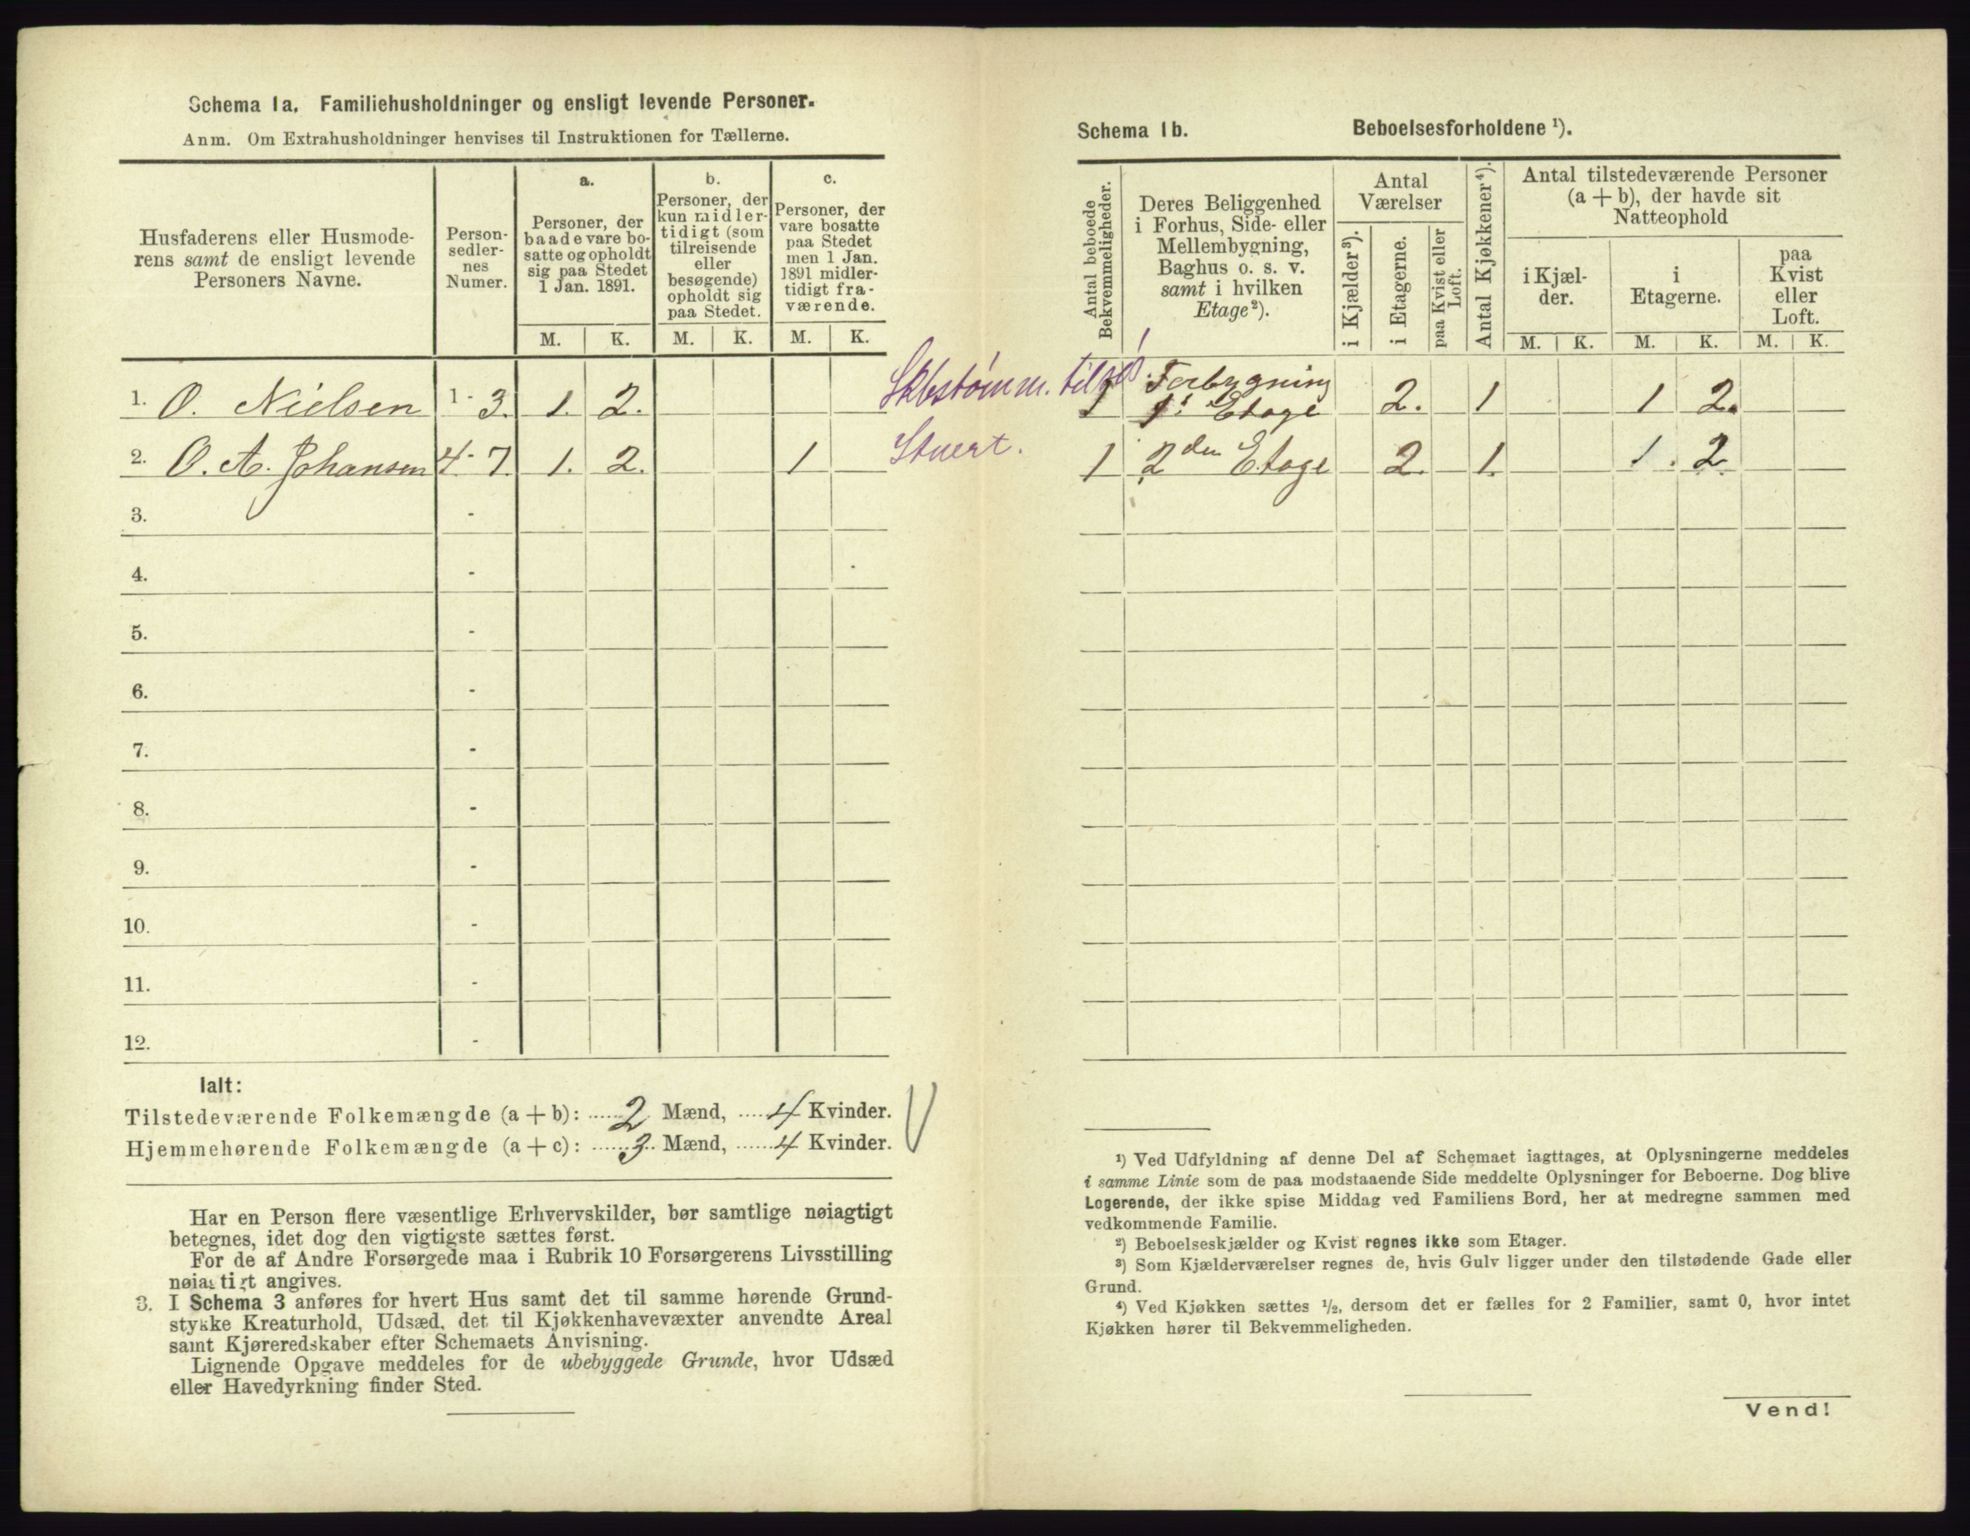 Schema 1a. Familiehusholdninger og ensligt levende Personer.
Anm. Om Extrahusholdninger henvises til Instruktionen for Tællerne.
Husfaderens eller Husmode-
rens samt de ensligt levende
Personers Navne.
Person-
sedler-
nes
Numer.
a.
Personer, der
baade vare bo-
satte og opholdt
sig paa Stedet
1 Jan. 1891.
b.
Personer, der
kun midler-
tidigt (som
tilreisende
eller
besøgende)
opholdt sig
paa Stedet.
c.
Personer, der
vare bosatte
paa Stedet
men 1 Jan.
1891 midler-
tidigt fra-
værende.
M. K. M. K. M. K.
1. O. Nielsen 1 - 3. 1. 2.
2. O. A. Johansen 4 - 7. 1. 2. 1
3. -
4. -
5. -
6. -
7. -
8. -
9. -
10. -
11. -
12. -
Ialt:
Tilstedeværende Folkemængde (a + b): 2 Mænd, 4 Kvinder.
Hjemmehørende Folkemængde (a + c): 3 Mænd, 4 Kvinder.
Har en Person flere væsentlige Erhvervskilder, bør samtlige nøiagtigt
betegnes, idet dog den vigtigste sættes først.
For de af Andre Forsørgede maa i Rubrik 10 Forsørgerens Livsstilling
nøiagtigt angives.
3. I Schema 3 anføres for hvert Hus samt det til samme hørende Grund-
stykke Kreaturhold, Udsæd, det til Kjøkkenhavevæxter anvendte Areal
samt Kjøreredskaber efter Schemaets Anvisning.
Lignende Opgave meddeles for de ubebyggede Grunde, hvor Udsæd
eller Havedyrkning finder Sted.
Schema 1b. Beboelsesforholdene ¹).
Antal beboede
Bekvemmeligheder.
Deres Beliggenhed
i Forhus, Side- eller
Mellembygning,
Baghus o. s. v.
samt i hvilken
Etage²).
Antal
Værelser
i Kjælder³).
i Etagerne.
paa Kvist eller
Loft.
Antal Kjøkkener⁴).
Antal tilstedeværende Personer
(a + b), der havde sit
Natteophold
i Kjæl-
der.
i
Etagerne.
paa
Kvist
eller
Loft.
M. K. M. K. M. K.
1 Forbygning
1ˢᵗ Etage 2. 1 1 2.
Stuert.
1 2den Etage 2. 1. 1. 2
¹) Ved Udfyldning af denne Del af Schemaet iagttages, at Oplysningerne meddeles
i samme Linie som de paa modstaaende Side meddelte Oplysninger for Beboerne. Dog blive
Logerende, der ikke spise Middag ved Familiens Bord, her at medregne sammen med
vedkommende Familie.
²) Beboelseskjælder og Kvist regnes ikke som Etager.
³) Som Kjælderværelser regnes de, hvis Gulv ligger under den tilstødende Gade eller
Grund.
⁴) Ved Kjøkken sættes ½, dersom det er fælles for 2 Familier, samt 0, hvor intet
Kjøkken hører til Bekvemmeligheden.
Vend!